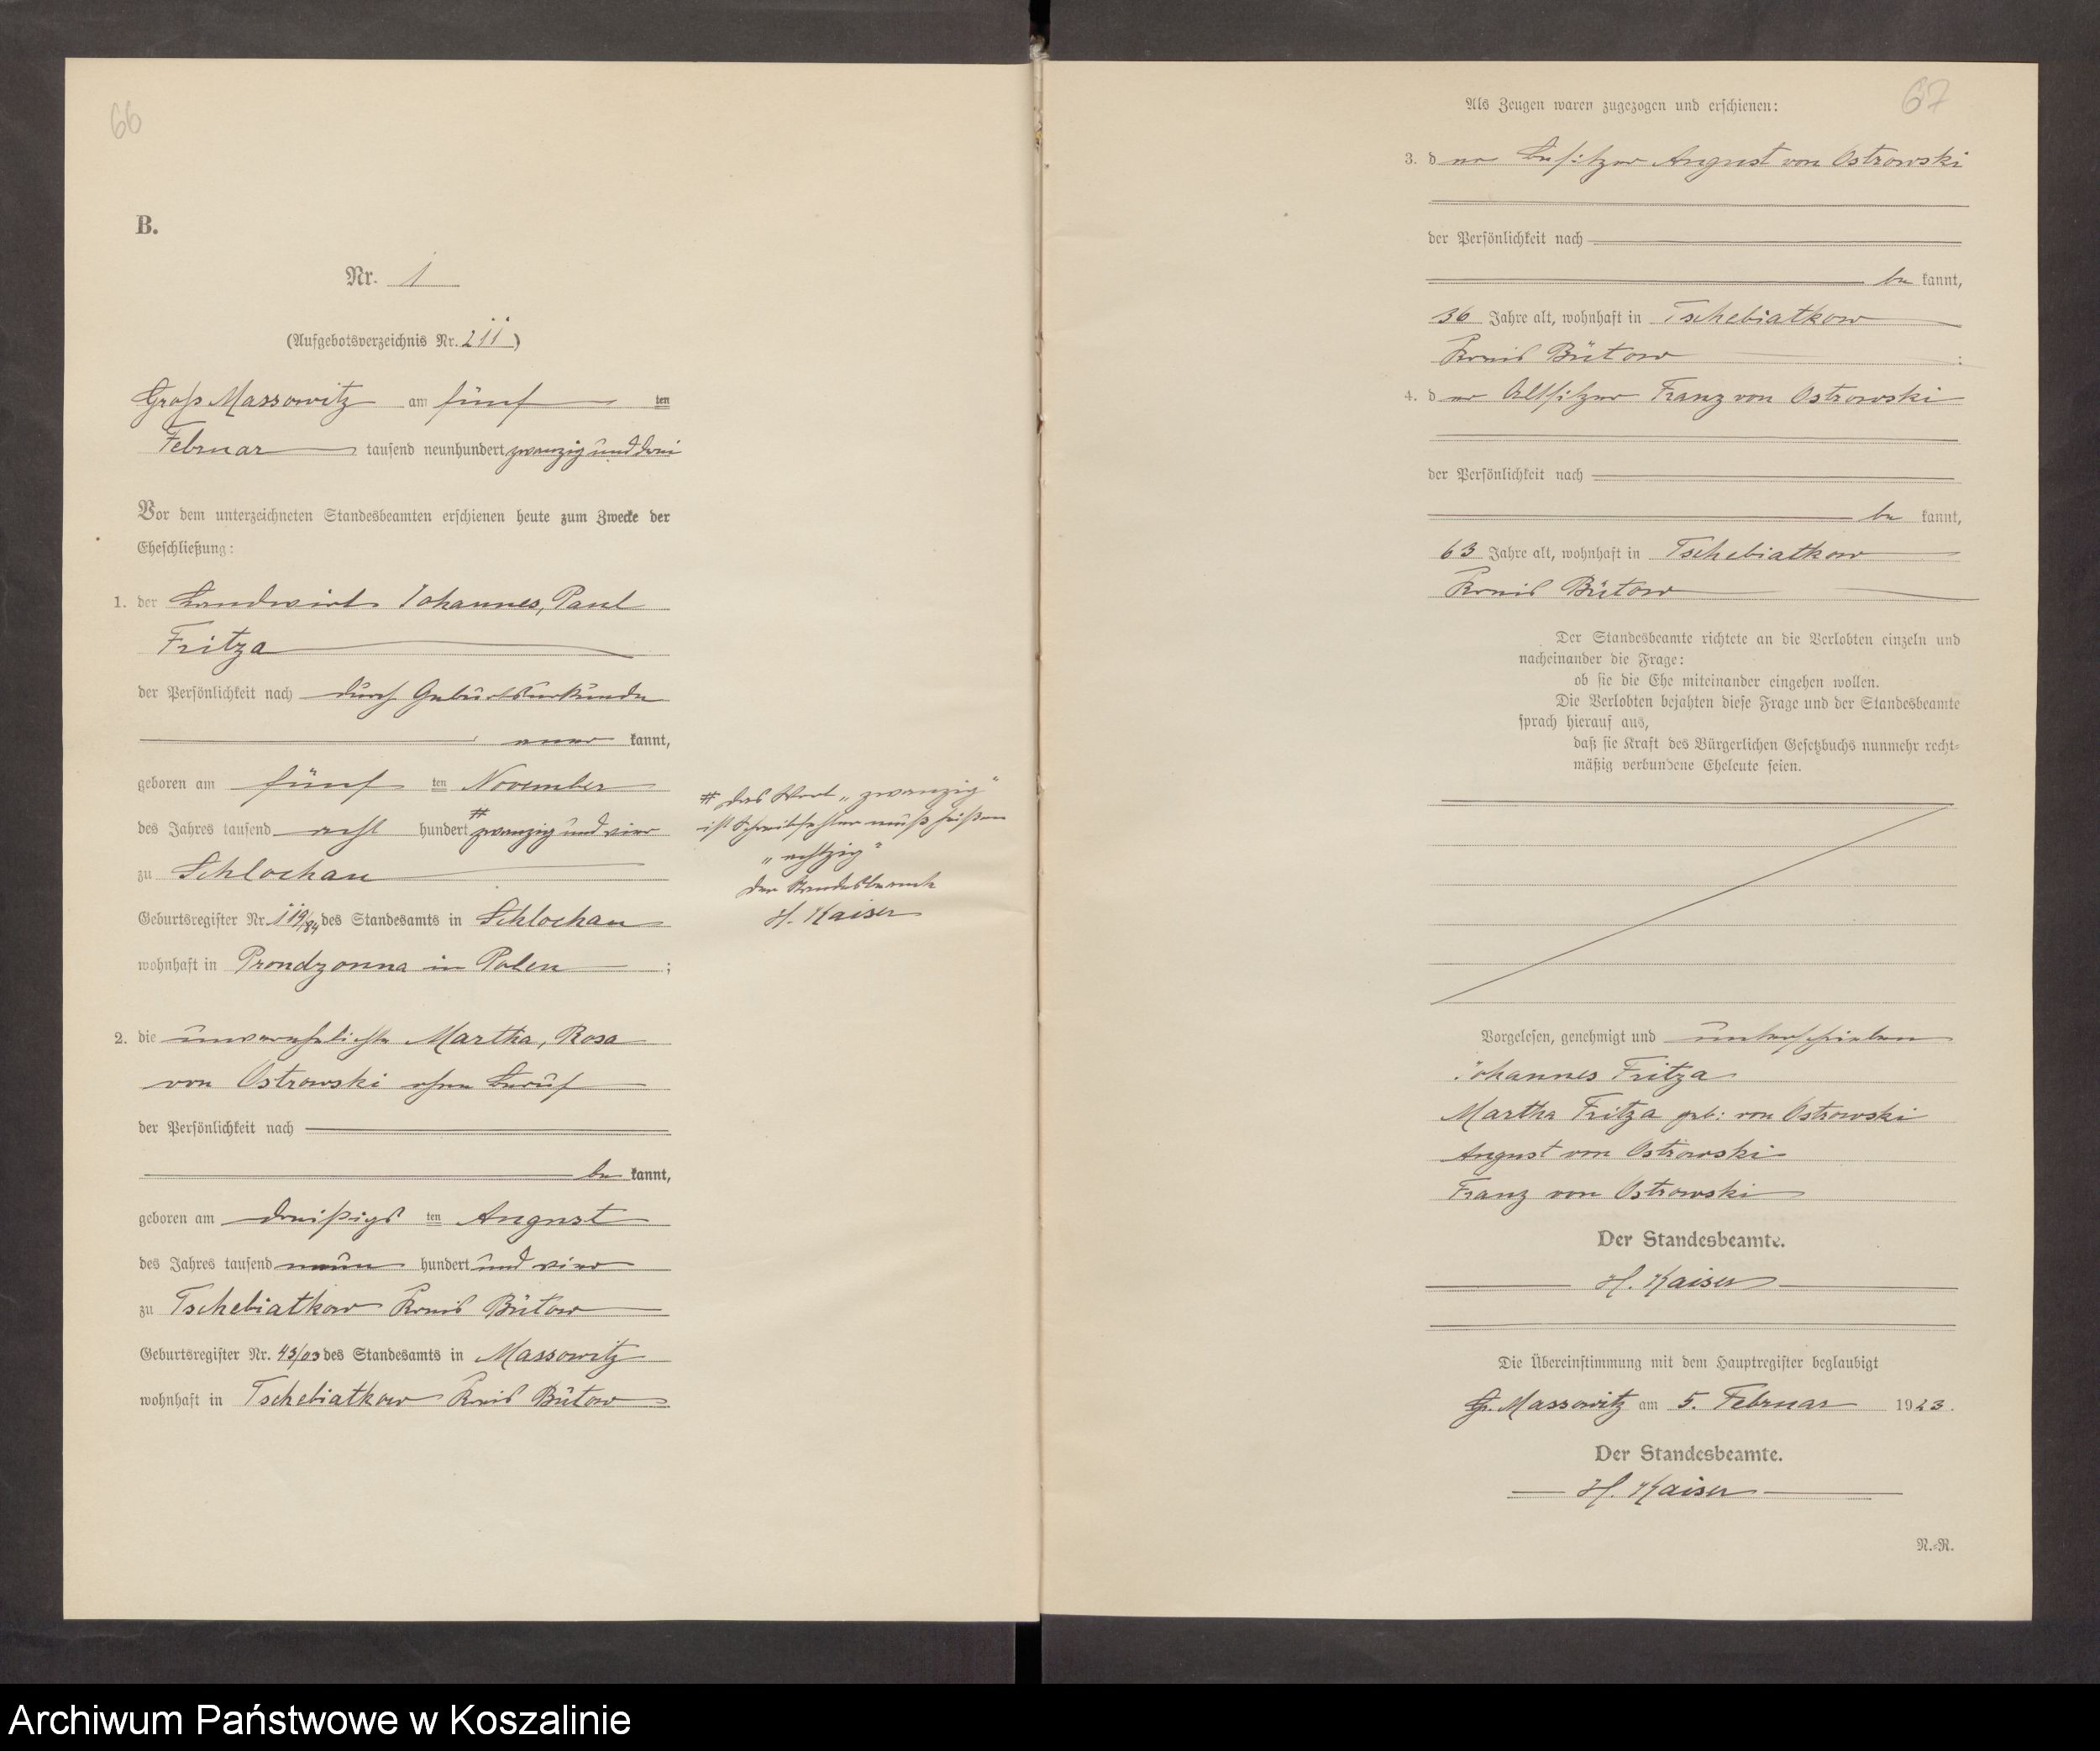 66
B.
Nr. 1
(Aufgebotsverzeichnis Nr. 211)
Groß Massowitz am fünf ten
Februar tausend neunhundert zwanzig und drei
Vor dem unterzeichneten Standesbeamten erschienen heute zum Zwecke der
Eheschließung:
1. der Landwirt Johannes, Paul
Fritza
der Persönlichkeit nach durch Geburtsurkunde
aner kannt,
geboren am fünf ten November
des Jahres tausend acht hundert # zwanzig und vier
zu Schlochau
Geburtsregister Nr. 119/84 des Standesamts in Schlochau
wohnhaft in Prondzonna in Polen ;
# das Wort „zwanzig"
ist Schreibfehler muß heißen
„achtzig"
Der Standesbeamte
H. Kaiser
2. die unverehelichte Martha, Rosa
von Ostrowski ohne Beruf
der Persönlichkeit nach
be kannt,
geboren am dreißigs ten August
des Jahres tausend neun hundert und vier
zu Tschebiatkow Kreis Bütow
Geburtsregister Nr. 43/03 des Standesamts in Massowitz
wohnhaft in Tschebiatkow Kreis Bütow
67
Als Zeugen waren zugezogen und erschienen:
3. der Besitzer August von Ostrowski
der Persönlichkeit nach
be kannt,
36 Jahre alt, wohnhaft in Tschebiatkow
Kreis Bütow :
4. der Altsitzer Franz von Ostrowski
der Persönlichkeit nach
be kannt,
63 Jahre alt, wohnhaft in Tschebiatkow
Kreis Bütow
Der Standesbeamte richtete an die Verlobten einzeln und
nacheinander die Frage:
ob sie die Ehe miteinander eingehen wollen.
Die Verlobten bejahten diese Frage und der Standesbeamte
sprach hierauf aus,
daß sie Kraft des Bürgerlichen Gesetzbuchs nunmehr recht-
mäßig verbundene Eheleute seien.
Vorgelesen, genehmigt und unterschrieben
Johannes Fritza
Martha Fritza geb: von Ostrowski
August von Ostrowski
Franz von Ostrowski
Der Standesbeamte.
H. Kaiser
Die Übereinstimmung mit dem Hauptregister beglaubigt
Gr. Massowitz am 5. Februar 1923.
Der Standesbeamte.
H. Kaiser
N.-R.
Archiwum Państwowe w Koszalinie